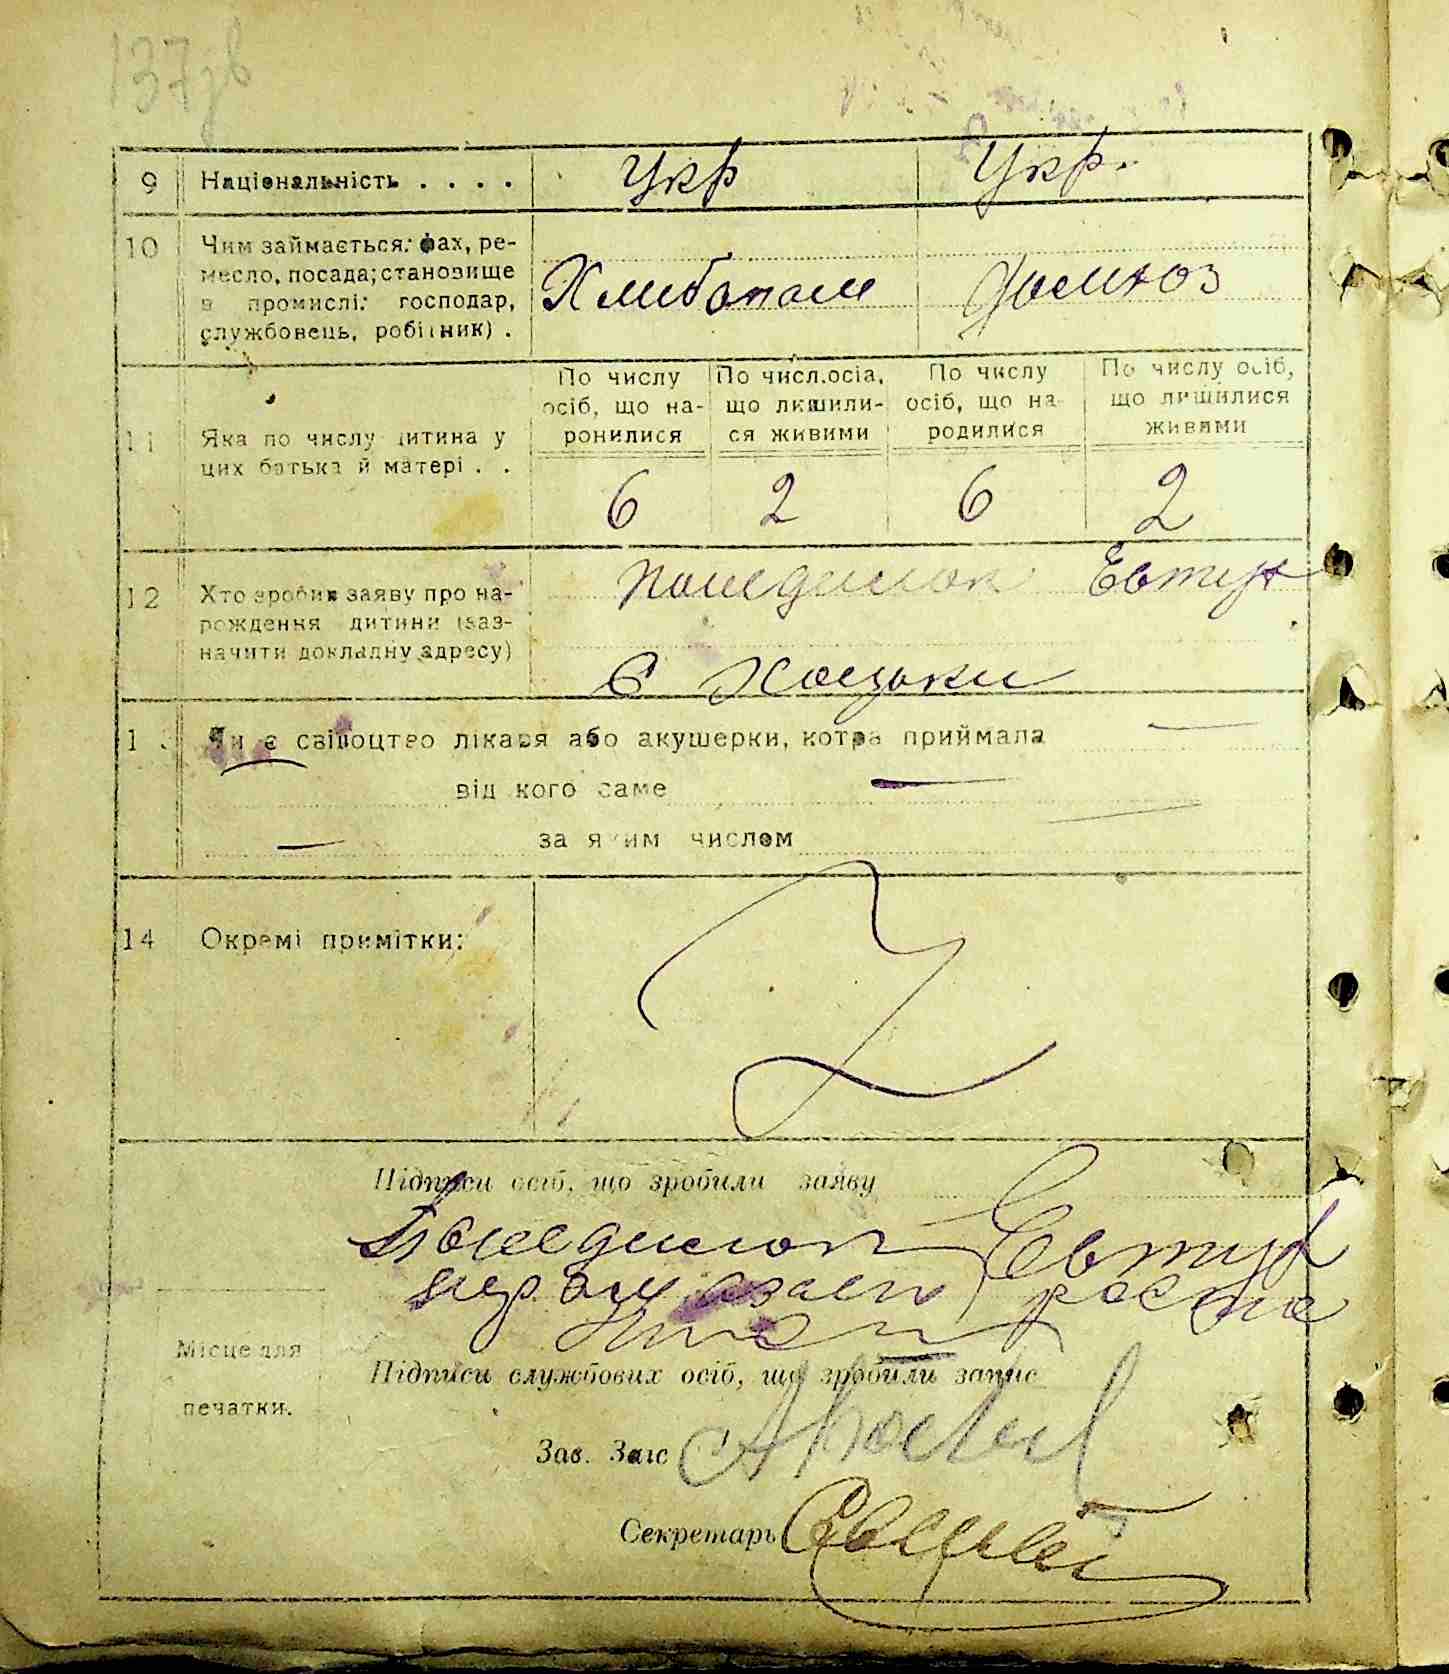 137зв
9 Національність . . . . Укр Укр.
10 Чим займається: фах, ре-
месло, посада; становище
в промислі: господар,
службовець, робітник) .
Хлибопаш Домхоз
11 Яка по числу дитина у
цих батька й матері . .
По числу
осіб, що на-
ронилися
По числ.осіа,
що лишили-
ся живими
По числу
осіб, що на-
родилися
По числу осіб,
що лишилися
живими
6 2 6 2
12 Хто зробив заяву про на-
рождення дитини (заз-
начити докладну адресу)
Поединок Евтух
С Хоцьки
13 Чи є свідоцтво лікаря або акушерки, котра приймала —
від кого саме —
— за яким числом
14 Окремі примітки:
Підписи осіб, що зробили заяву
Поединок Евтух
Підписи службових осіб, що зробили запис
Місце для
печатки.
Зав. Загс
Секретарь